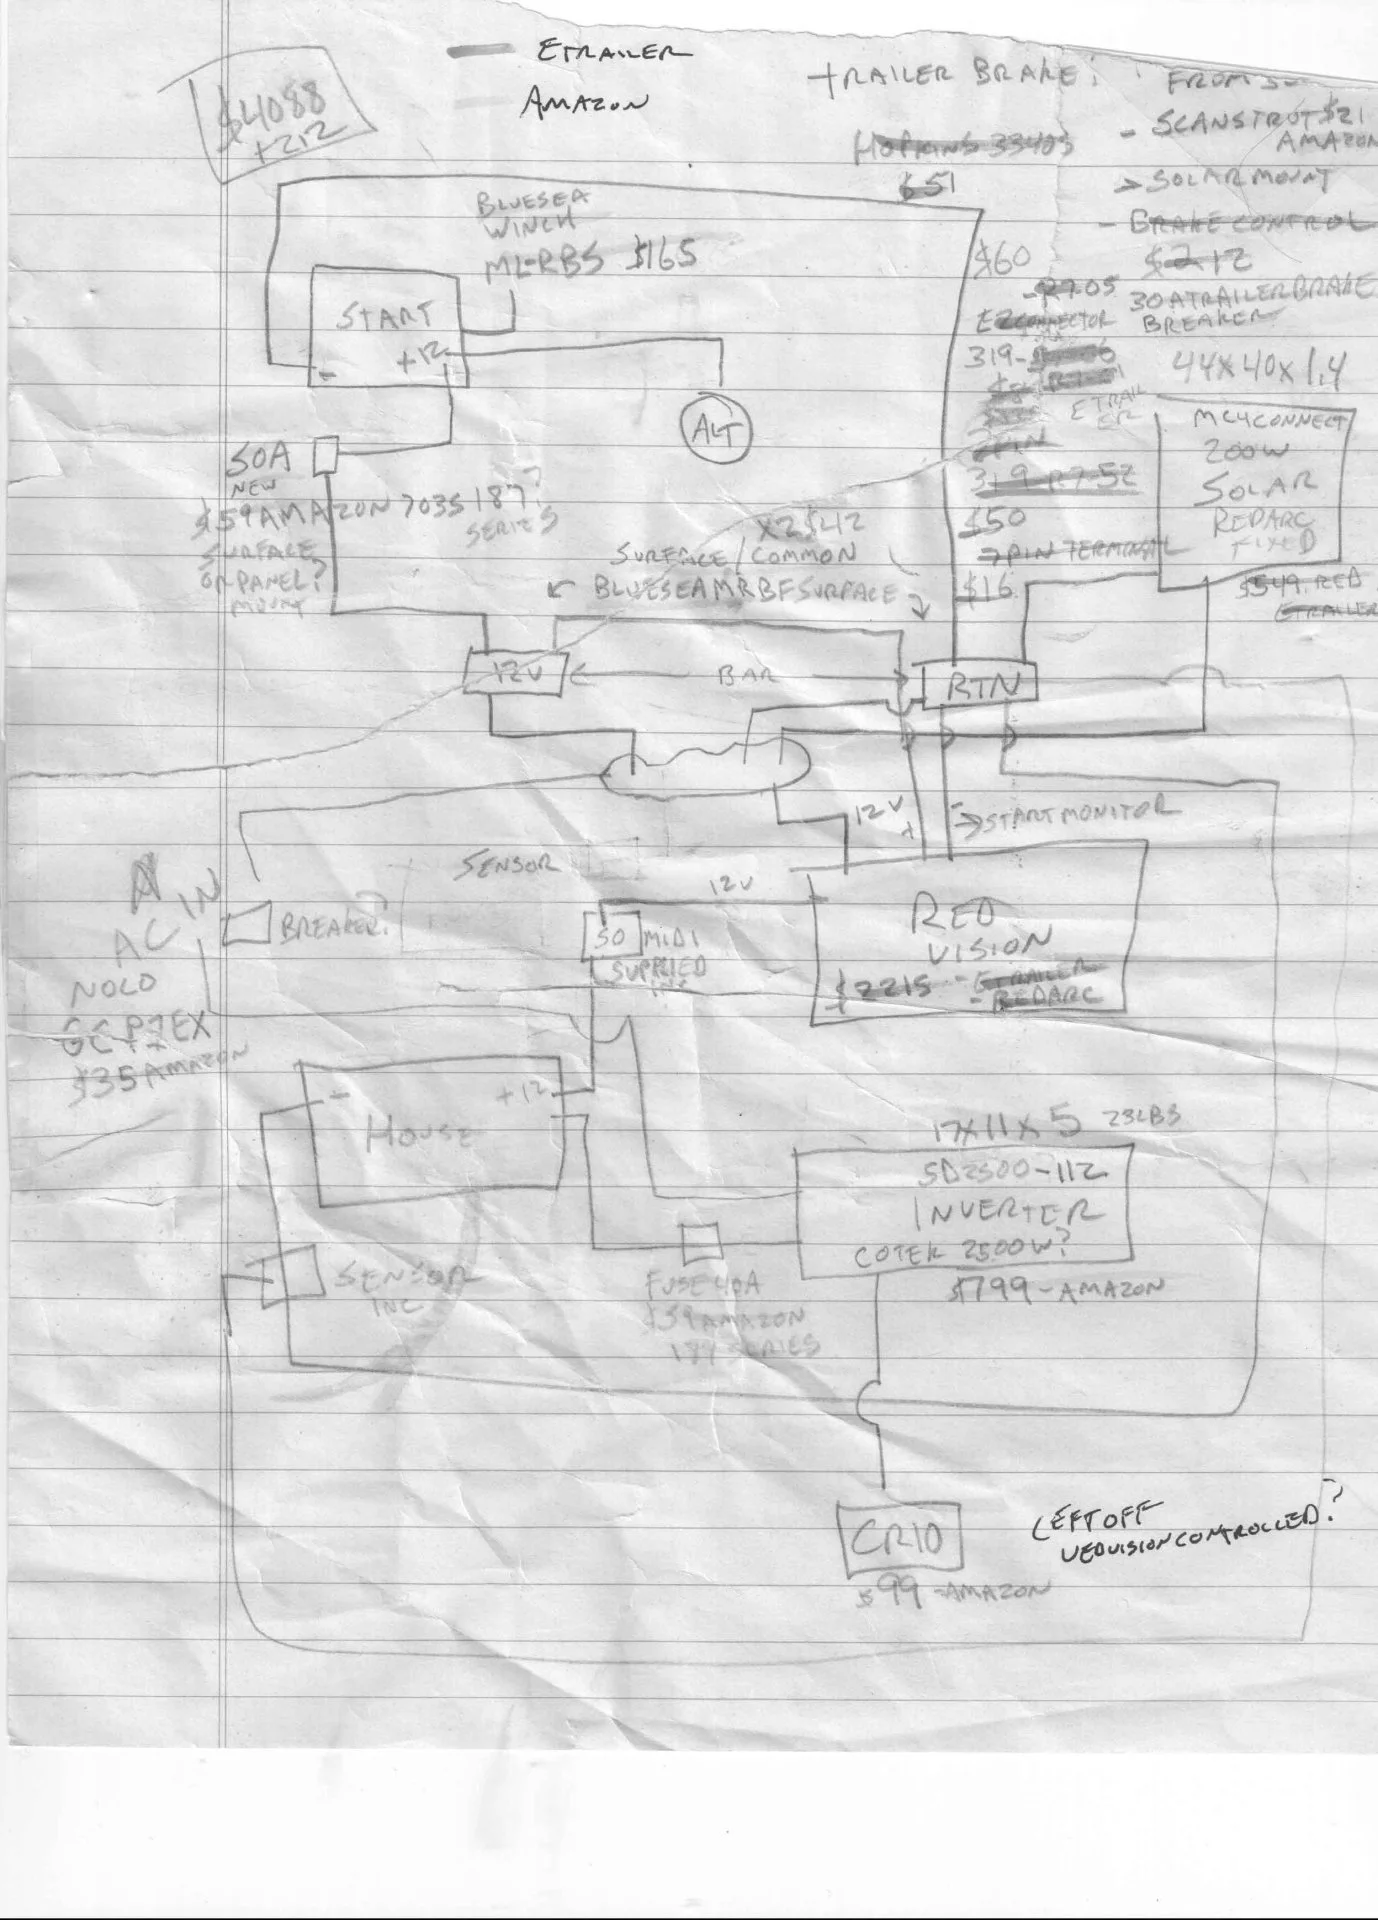 ETRAILER
AMAZON
$4088
+212
TRAILER BRAKE:
HOPKINS 53403
$51
SCANSTRUT $21
AMAZON
SOLAR MOUNT
BRAKE CONTROL
$212
30A TRAILER BRAKE
BREAKER
44x40x1.4
BLUESEA
WINCH
ML-RBS $165
START
+12
-
ALT
$60
CONNECTOR
319-
ETRAIL
ER
319
$50
7 PIN TERMINAL
$16
MC4 CONNECT
200W
SOLAR
REDARC
FIXED
$549. RED
ETRAILER
50A
NEW
$59 AMAZON 7035 187?
SERIES
SURFACE
OR PANEL?
MOUNT
X2 $42
SURFACE / COMMON
BLUESEA MRBF SURFACE
12V
BAR
RTN
12V
+
- START MONITOR
A
AC IN
BREAKER?
SENSOR
12V
50 MIDI
SUPPLIED
INC
RED
VISION
$2215 - ETRAILER
- REDARC
NOCO
GCP1EX
$35 AMAZON
-
+12
HOUSE
SENSOR
INC
FUSE 40A
$59 AMAZON
187 SERIES
17x11x5 23LBS
SD2500-112
INVERTER
COTEK 2500W?
$799 - AMAZON
CR10
$99 - AMAZON
LEFT OFF
VEDVISION CONTROLLED?